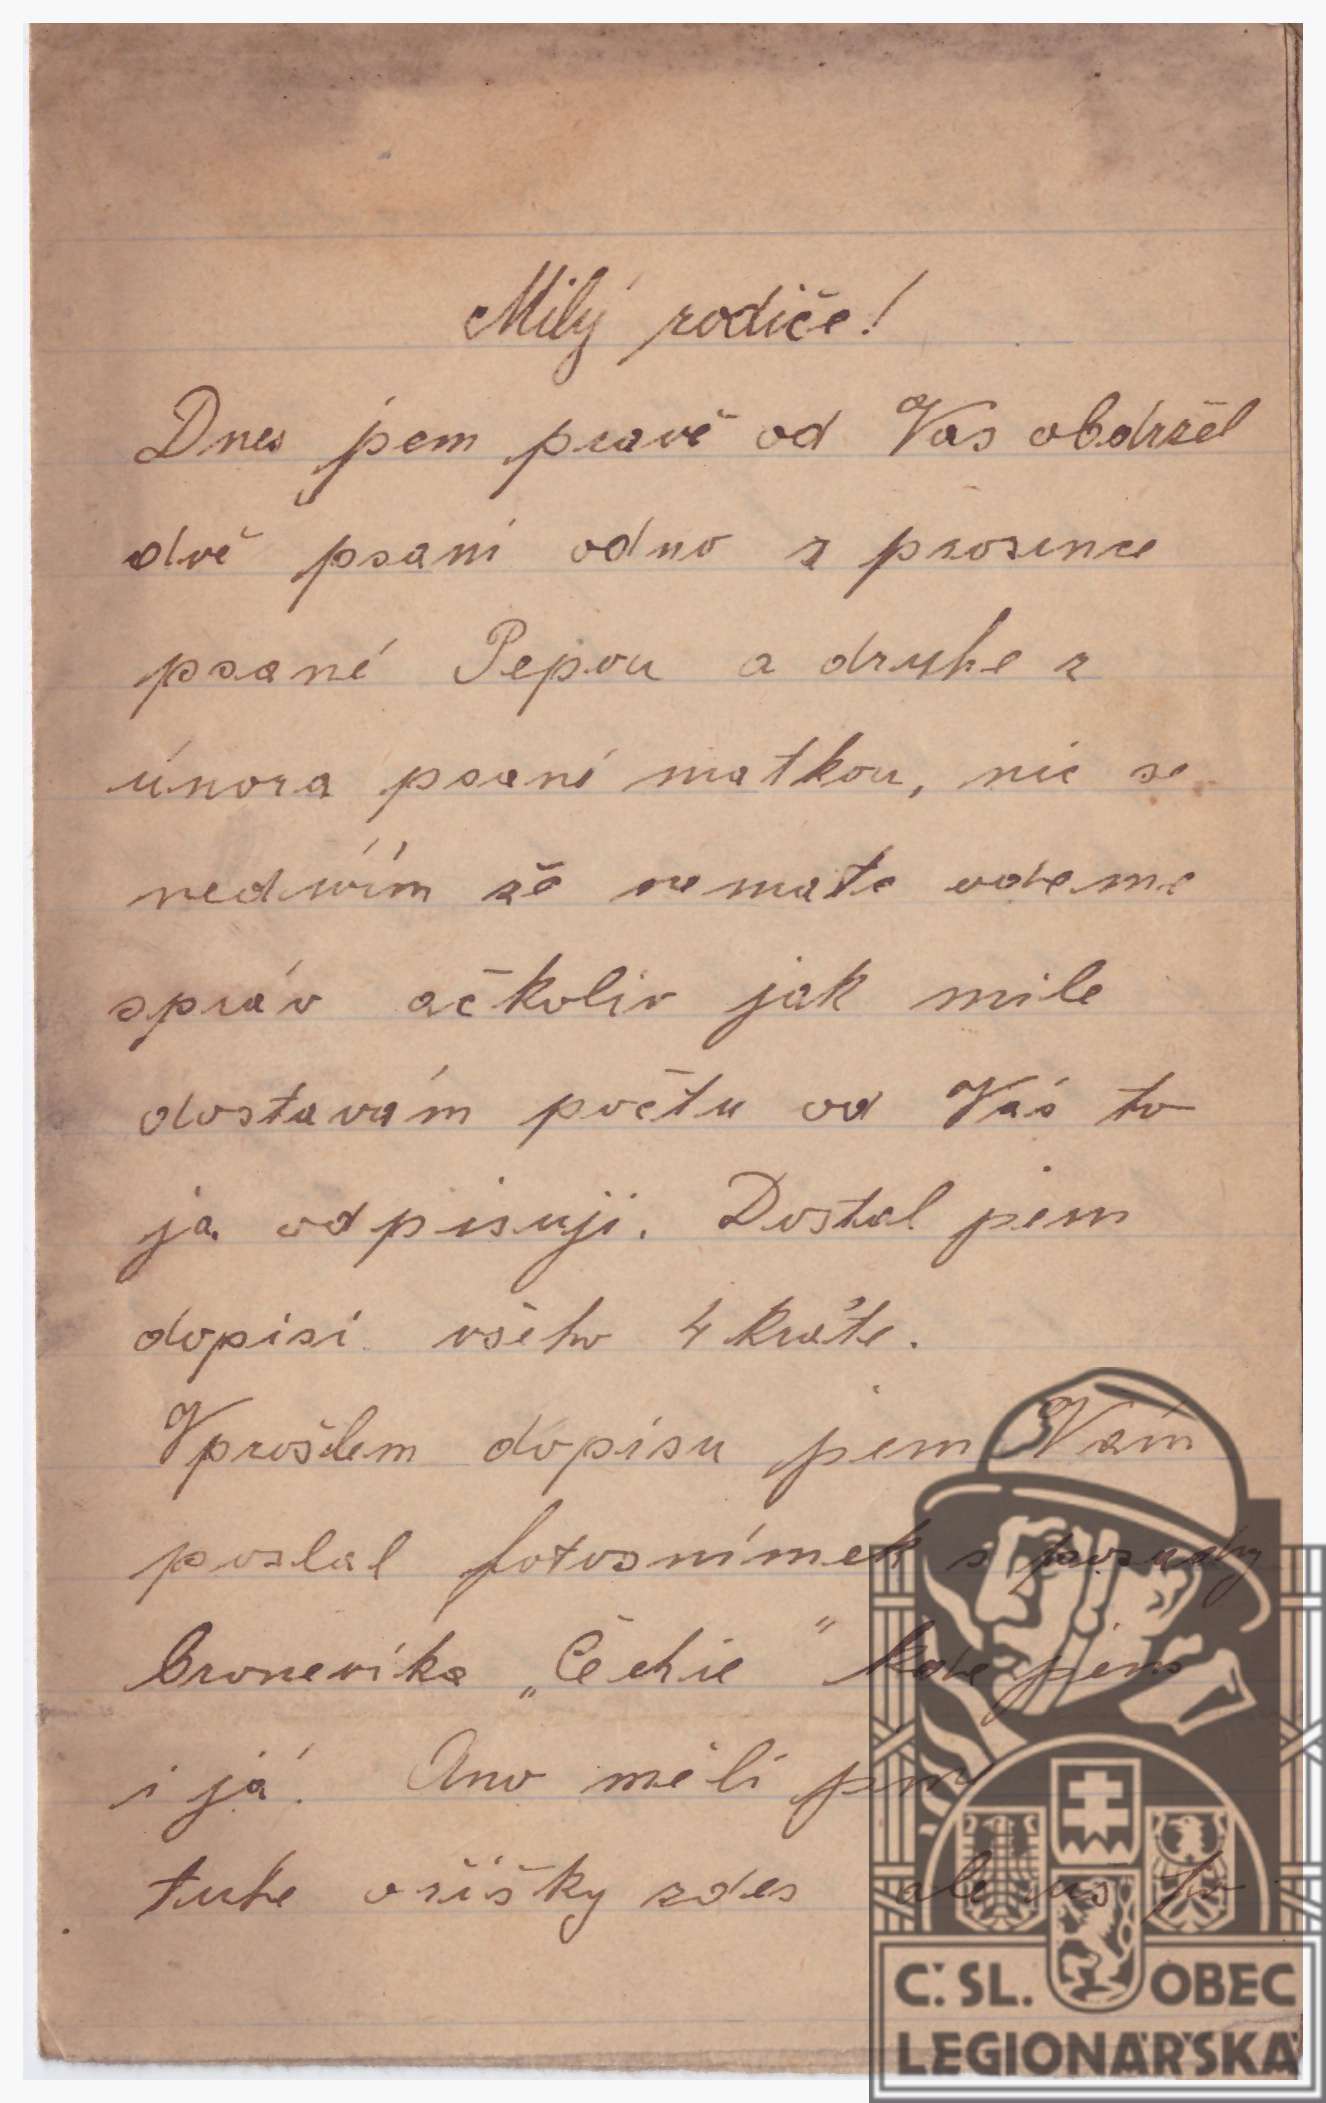 Milý rodiče!
Dnes jsem pravě od Vas obdržel
dvě psani odno z prosince
psané Pepou a druhe z
února psané matkou, nic se
nedivím zě nemate odeme
správ ačkoliv jak mile
dostavám počtu od Vás to
ja odpisuji. Dostal jsem
dopisi všeho 4 kráte.
Vprošlem dopisu jsem Vám
poslal fotosnímek s posadky
bronevika „Čechie" kde jsem
i já. Ano měli jsme
tuhe oříšky zdes ale už to
Č. SL. OBEC
LEGIONÁŘSKÁ